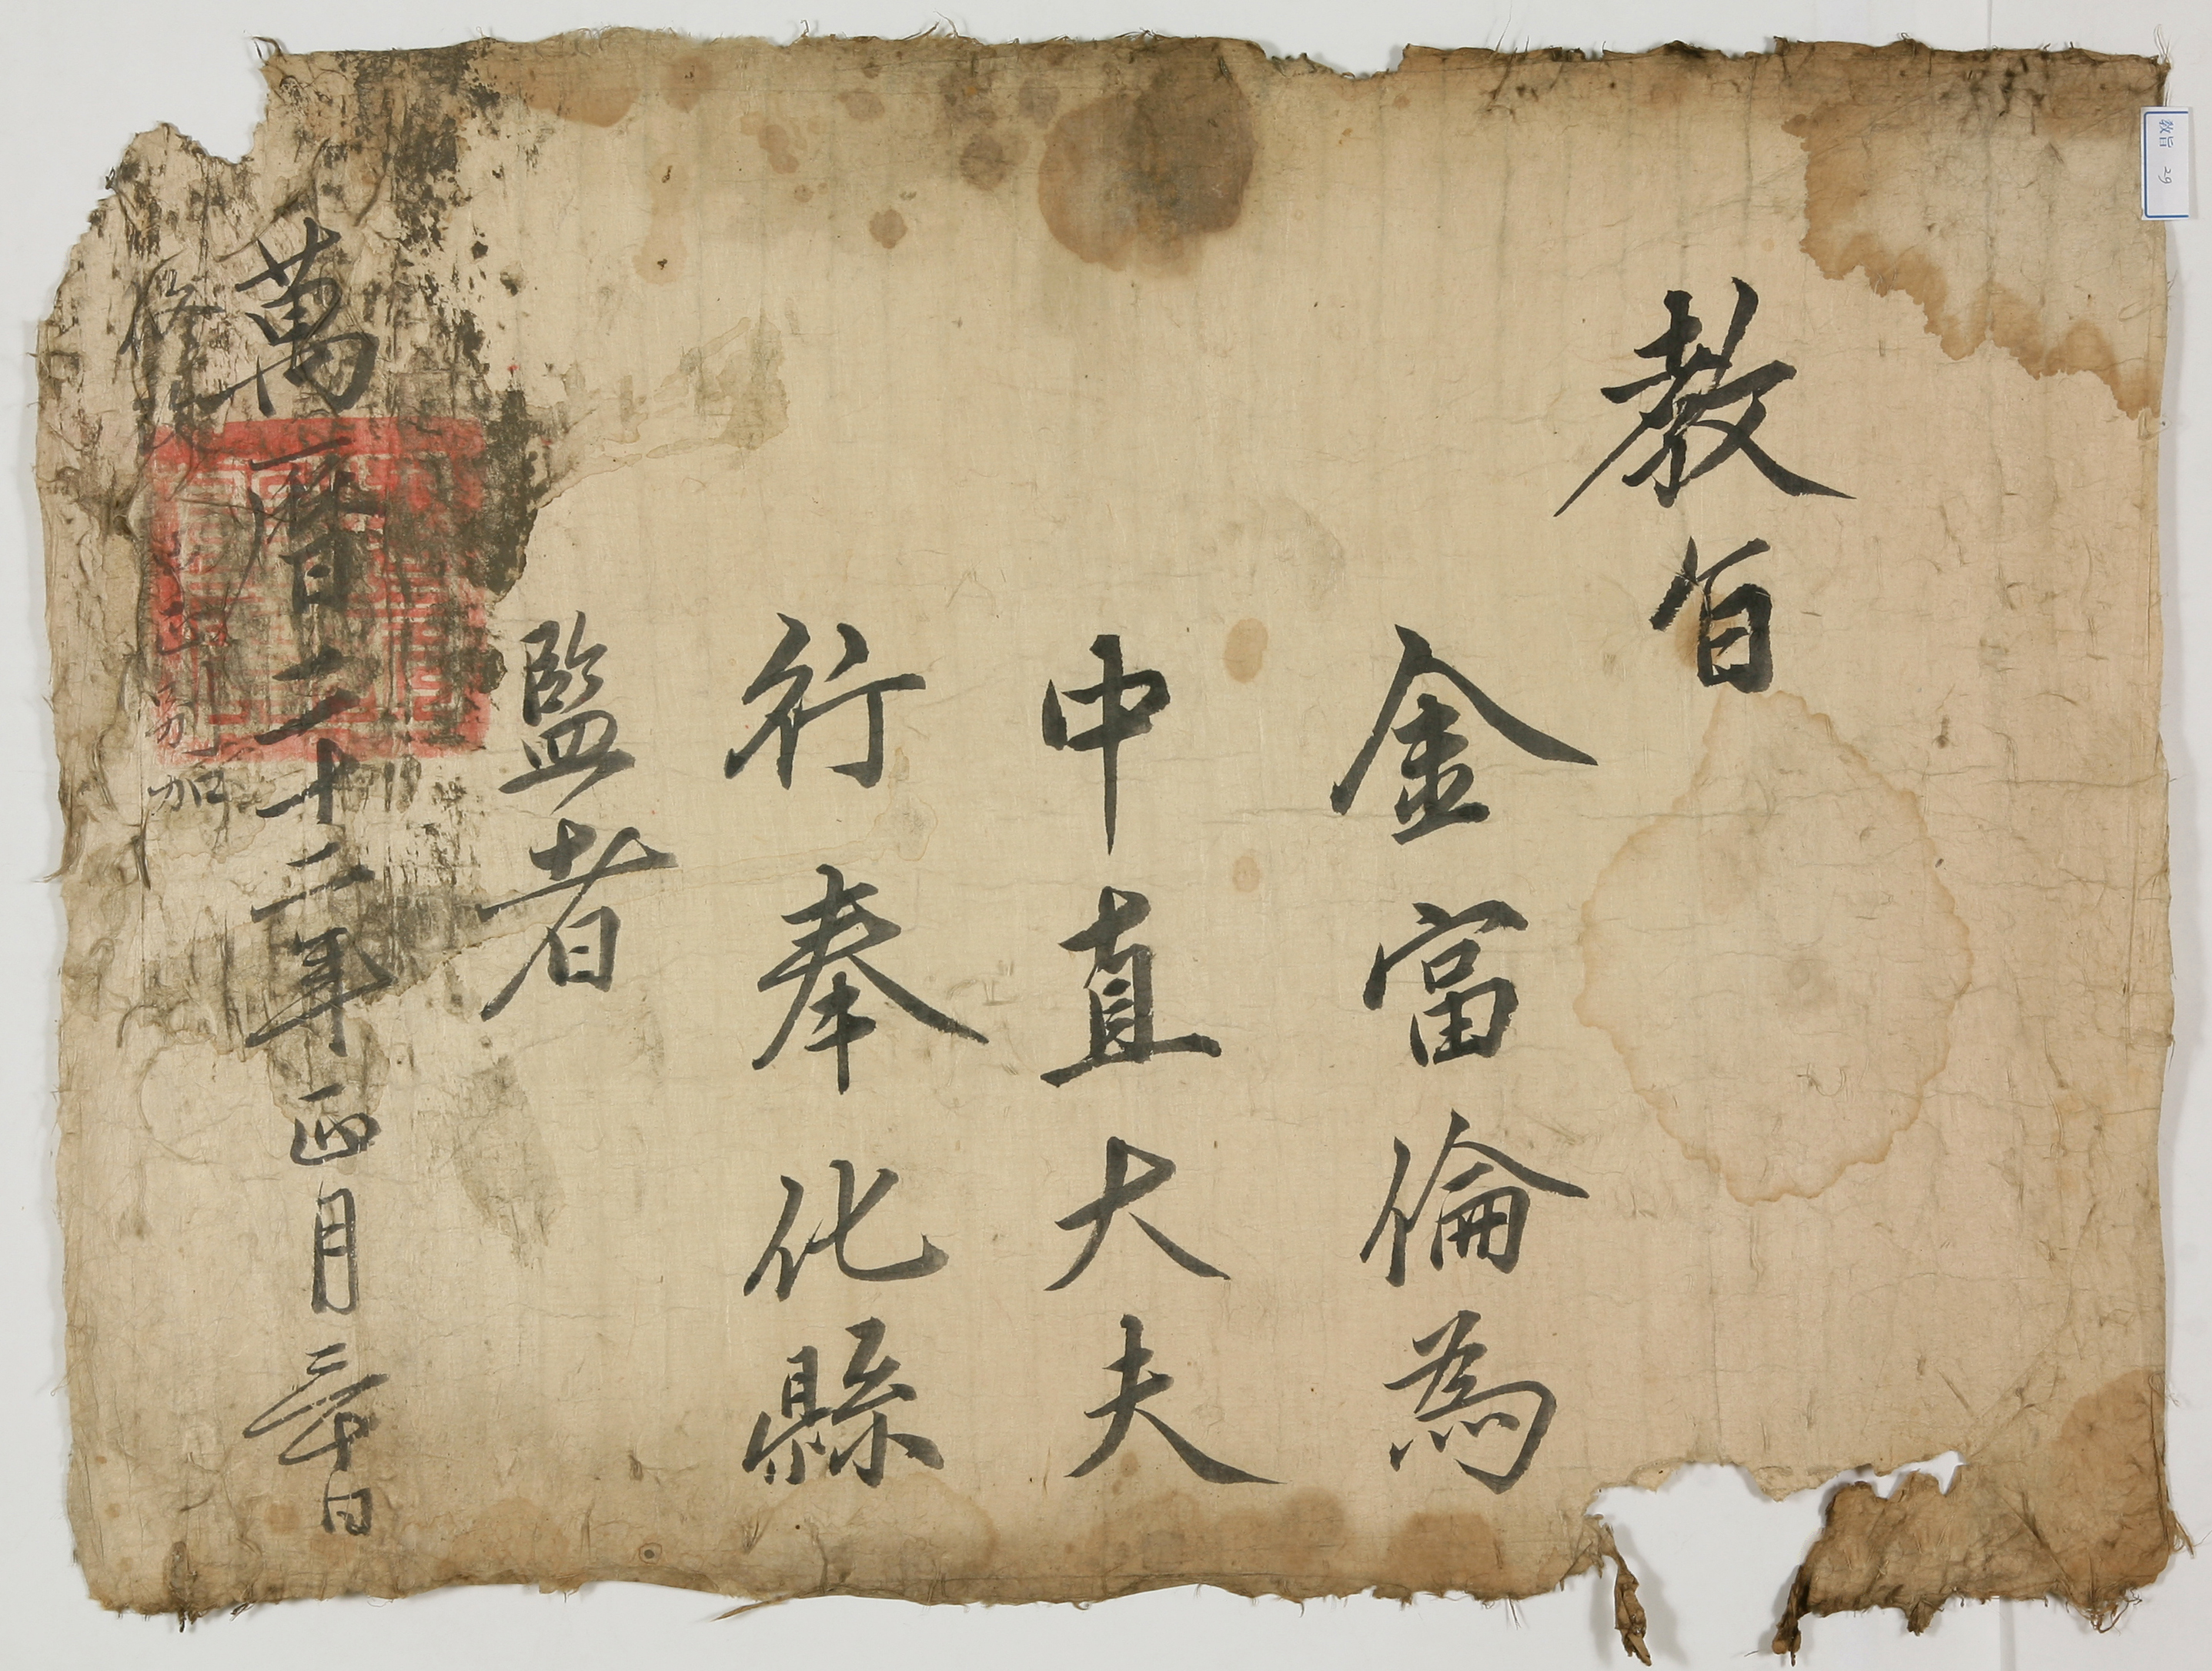 教旨
金富倫為
中直大夫
行奉化縣
監者
萬曆二十二年正月三十日
別加
教旨 29